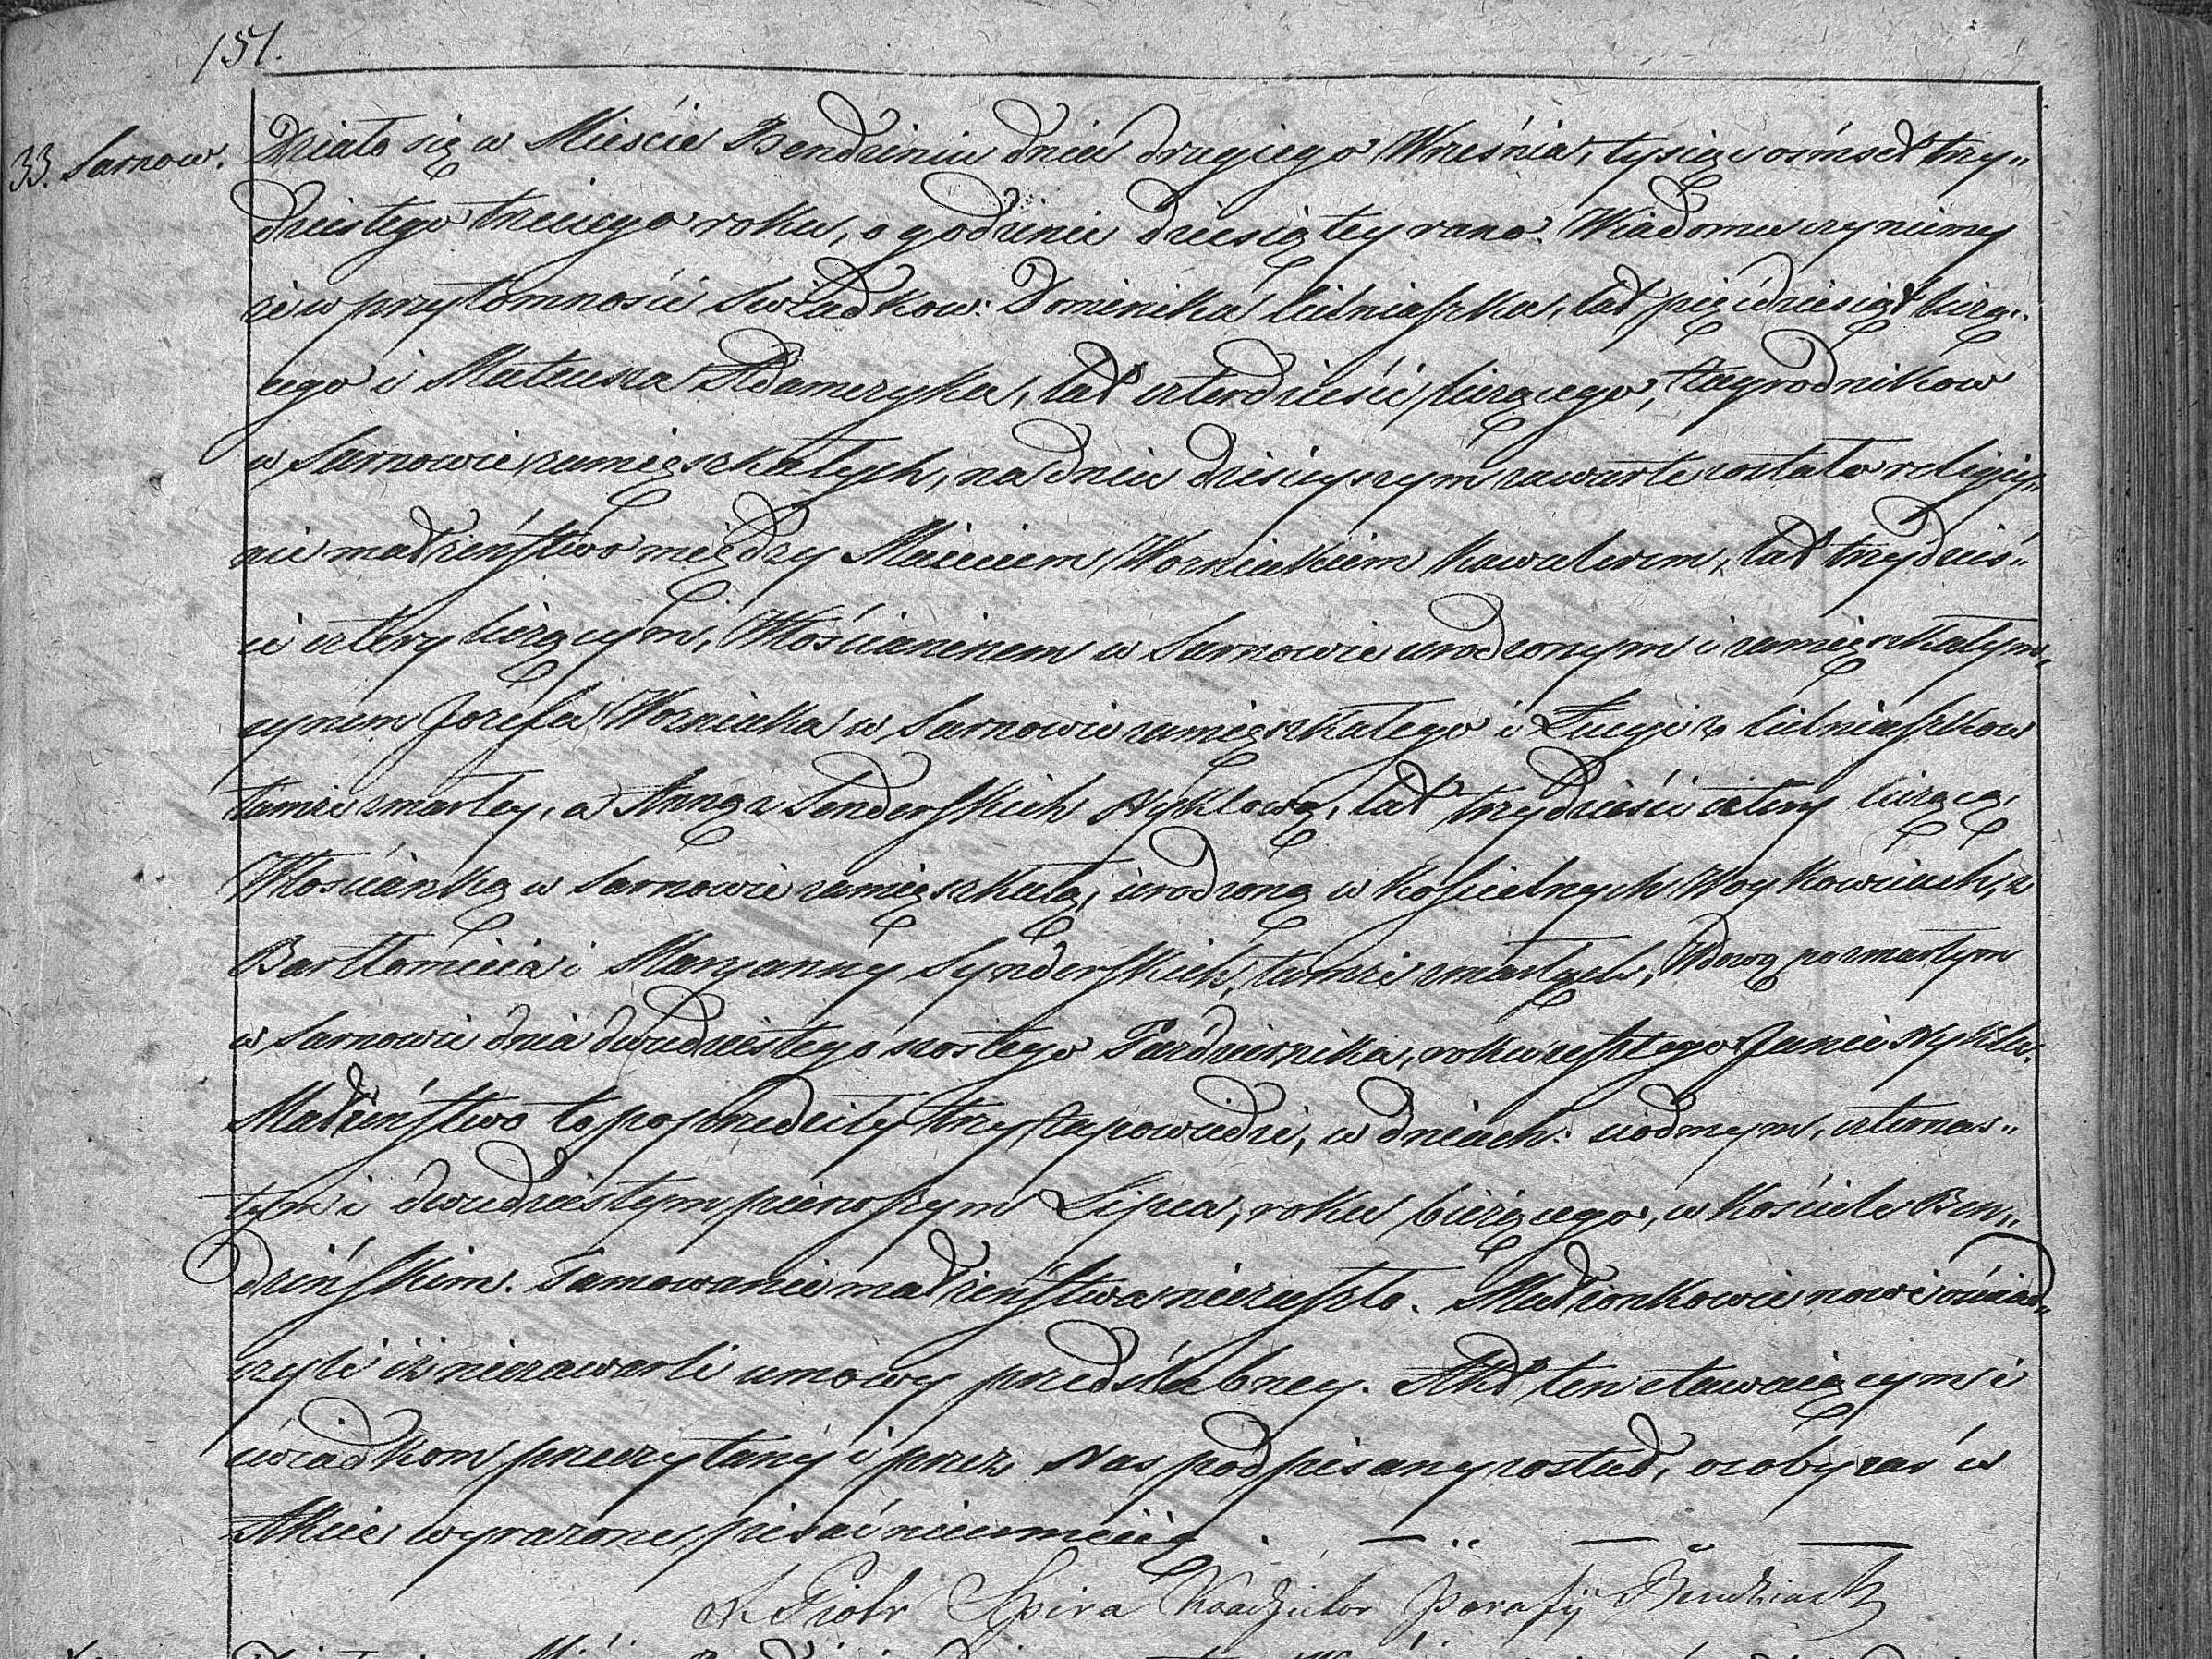 151.
33. Sarnow.
Działo się w Mieście Bendzinie dnia drugiego Września, tysiąc ośmset trzy„
dziestego trzeciego roku, o godzinie dziesiątey rano. Wiadomo czyniemy
że w przytomności świadkow: Dominika Cieśniaszka, lat pięćdziesiąt liczą„
cego i Mateusza Adamczyka, lat czterdzieści liczącego, Zagrodnikow
w Sarnowie zamięszkałych, na dniu dzisieyszym zawarte zostało religijy„
nie małżeństwo między Maciejem Wozniakiem kawalerem, lat trzydzieś„
ci cztery liczącym, Włościaninem w Sarnowie urodzonym i zamięszkałym,
synem Jozefa Wozniaka w Sarnowie zamięszkałego i Łucyi z Cieśniaszkow
tamże zmarłey, a Anną z Senderskich Nyklową, lat trzydzieści cztery liczącą,
Włościanką w Sarnowie zamięszkałą, urodzoną w Kościelnych Woykowicach, z
Bartłomieja i Maryanny Synderskich, tamże zmarłych, Wdową po zmarłym
w Sarnowie dnia dwudziestego szostego Października, roku zeszłego Janie Nyklu.
Małżeństwo to poprzedziły trzy Zapowiedzie, w dniach: siodmym, czternas„
tym i dwudziestym pierwszym Lipca, roku bieżącego, w kościele Ben„
dzińskim. Tamowanie małżeństwa niezaszło. Małżonkowie nowi oświad„
czyli iż niezawarli umowy przedślubney. Akt ten stawaiącym i
świadkom przeczytany i przez Nas podpisany został, osoby zaś w
Akcie wyrażone pisać nieumieią.
X. Piotr Spira Koadjutor Parafij Bendzinsk